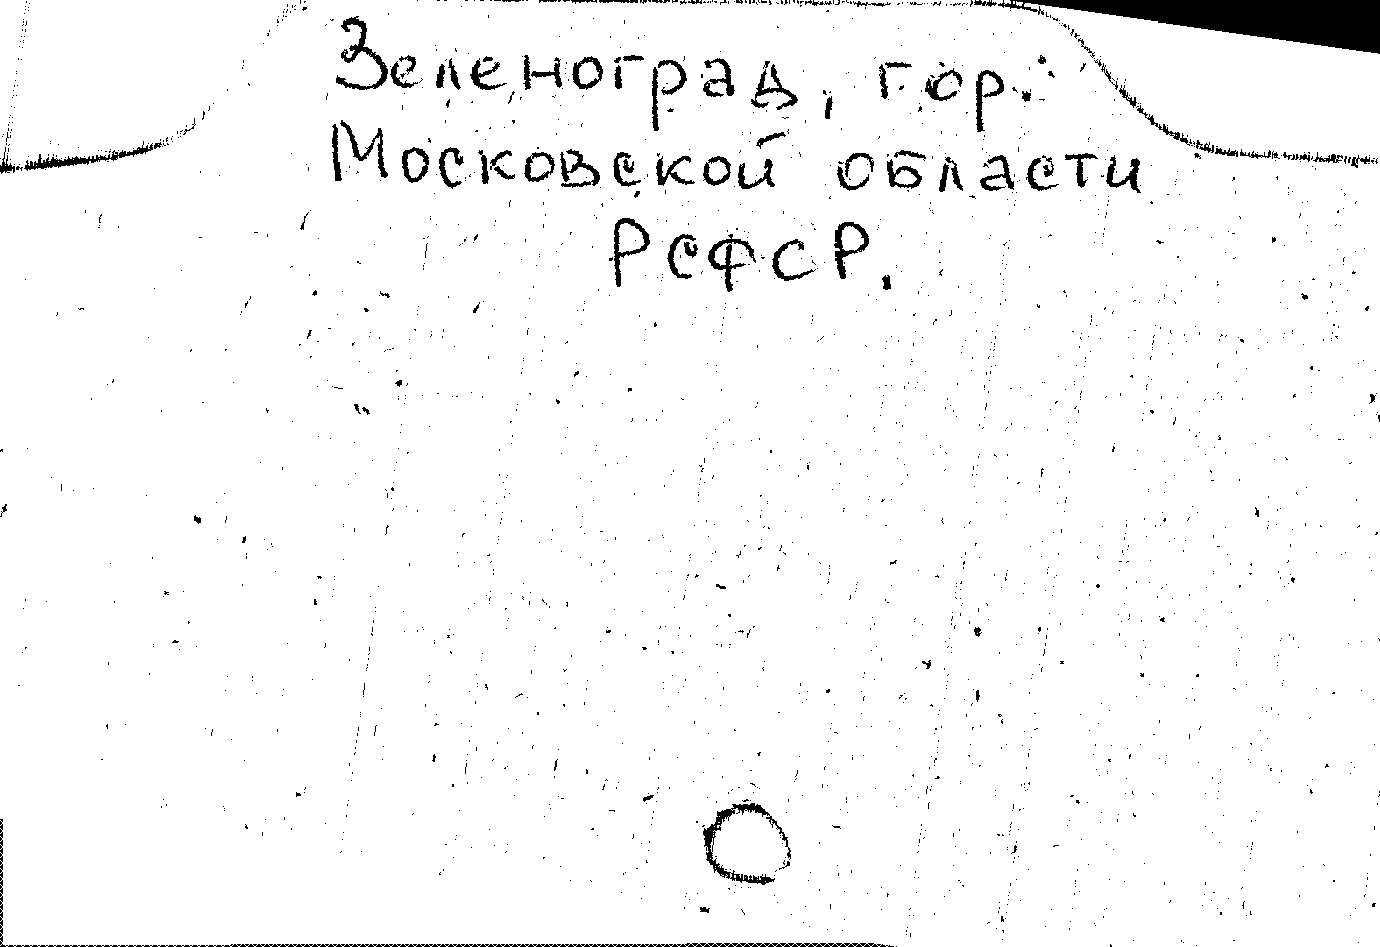 Зеленоград, гор.
Московской области
РСФСР.